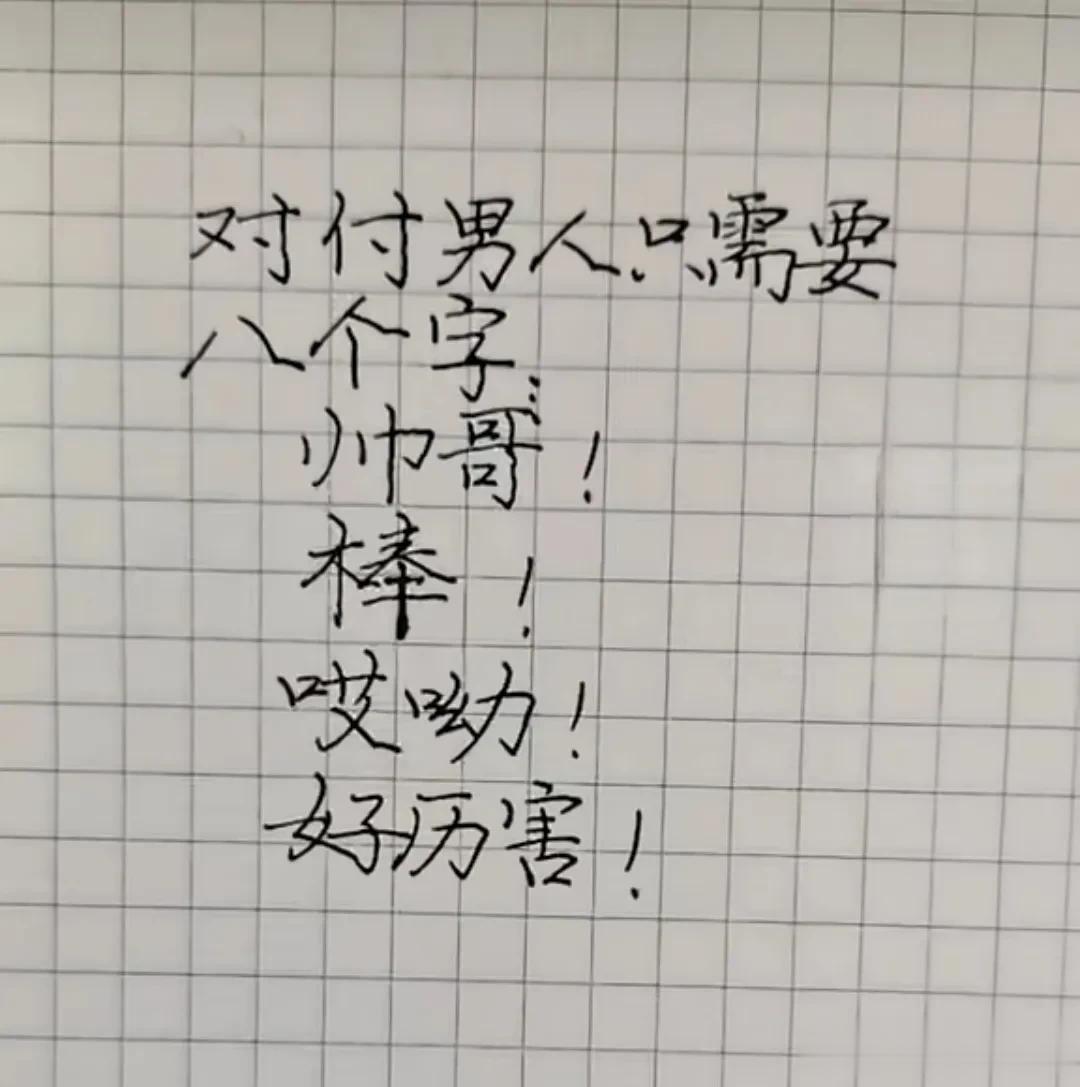 对付男人只需要
八个字：
帅哥！
棒！
哎呦！
好厉害！